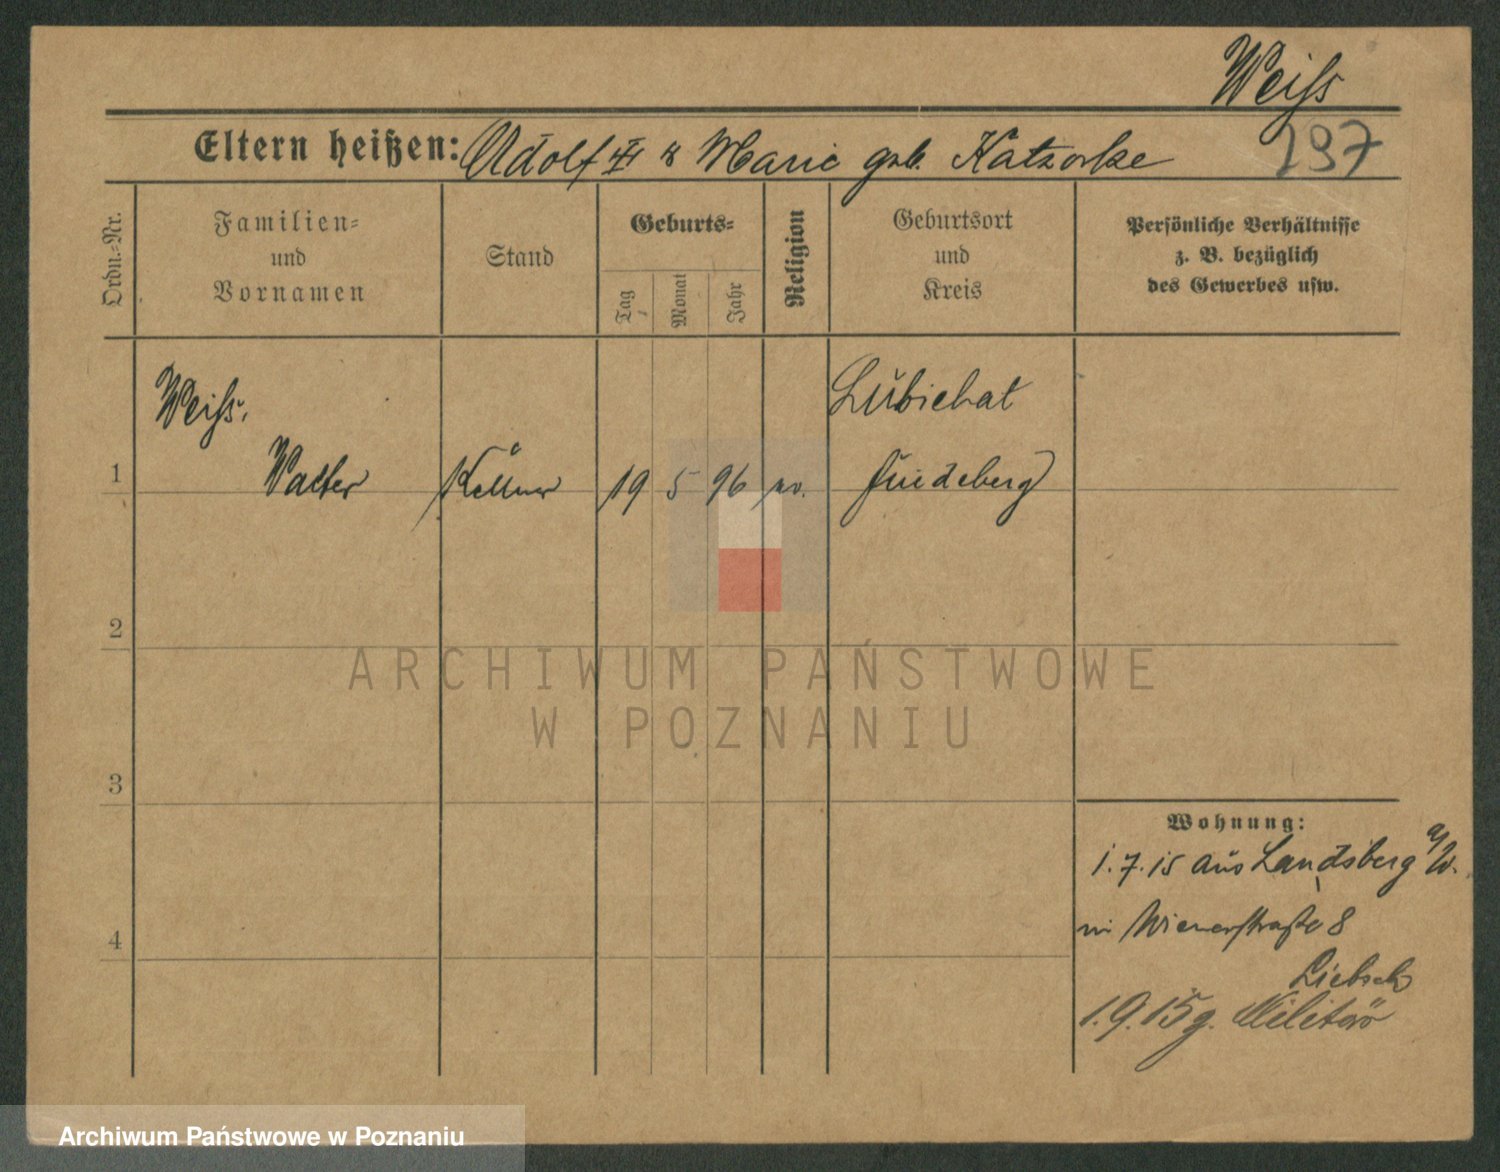 Weiß
197
Eltern heißen: Adolf III & Marie geb. Katzorke
Ordn.-Nr.
Familien-
und
Vornamen
Stand
Geburts-
Tag
Monat
Jahr
Religion
Geburtsort
und
Kreis
Persönliche Verhältnisse
z. B. bezüglich
des Gewerbes usw.
Weiß,
Lubiehat
1 Walter Kellner 19 5 96 ev. Friedeberg
2
ARCHIWUM PAŃSTWOWE
W POZNANIU
3
Wohnung:
1.7.15 aus Landsberg a/W.
Wienerstraße 8
4
Liebsch
1.9.15 z. Militär
Archiwum Państwowe w Poznaniu